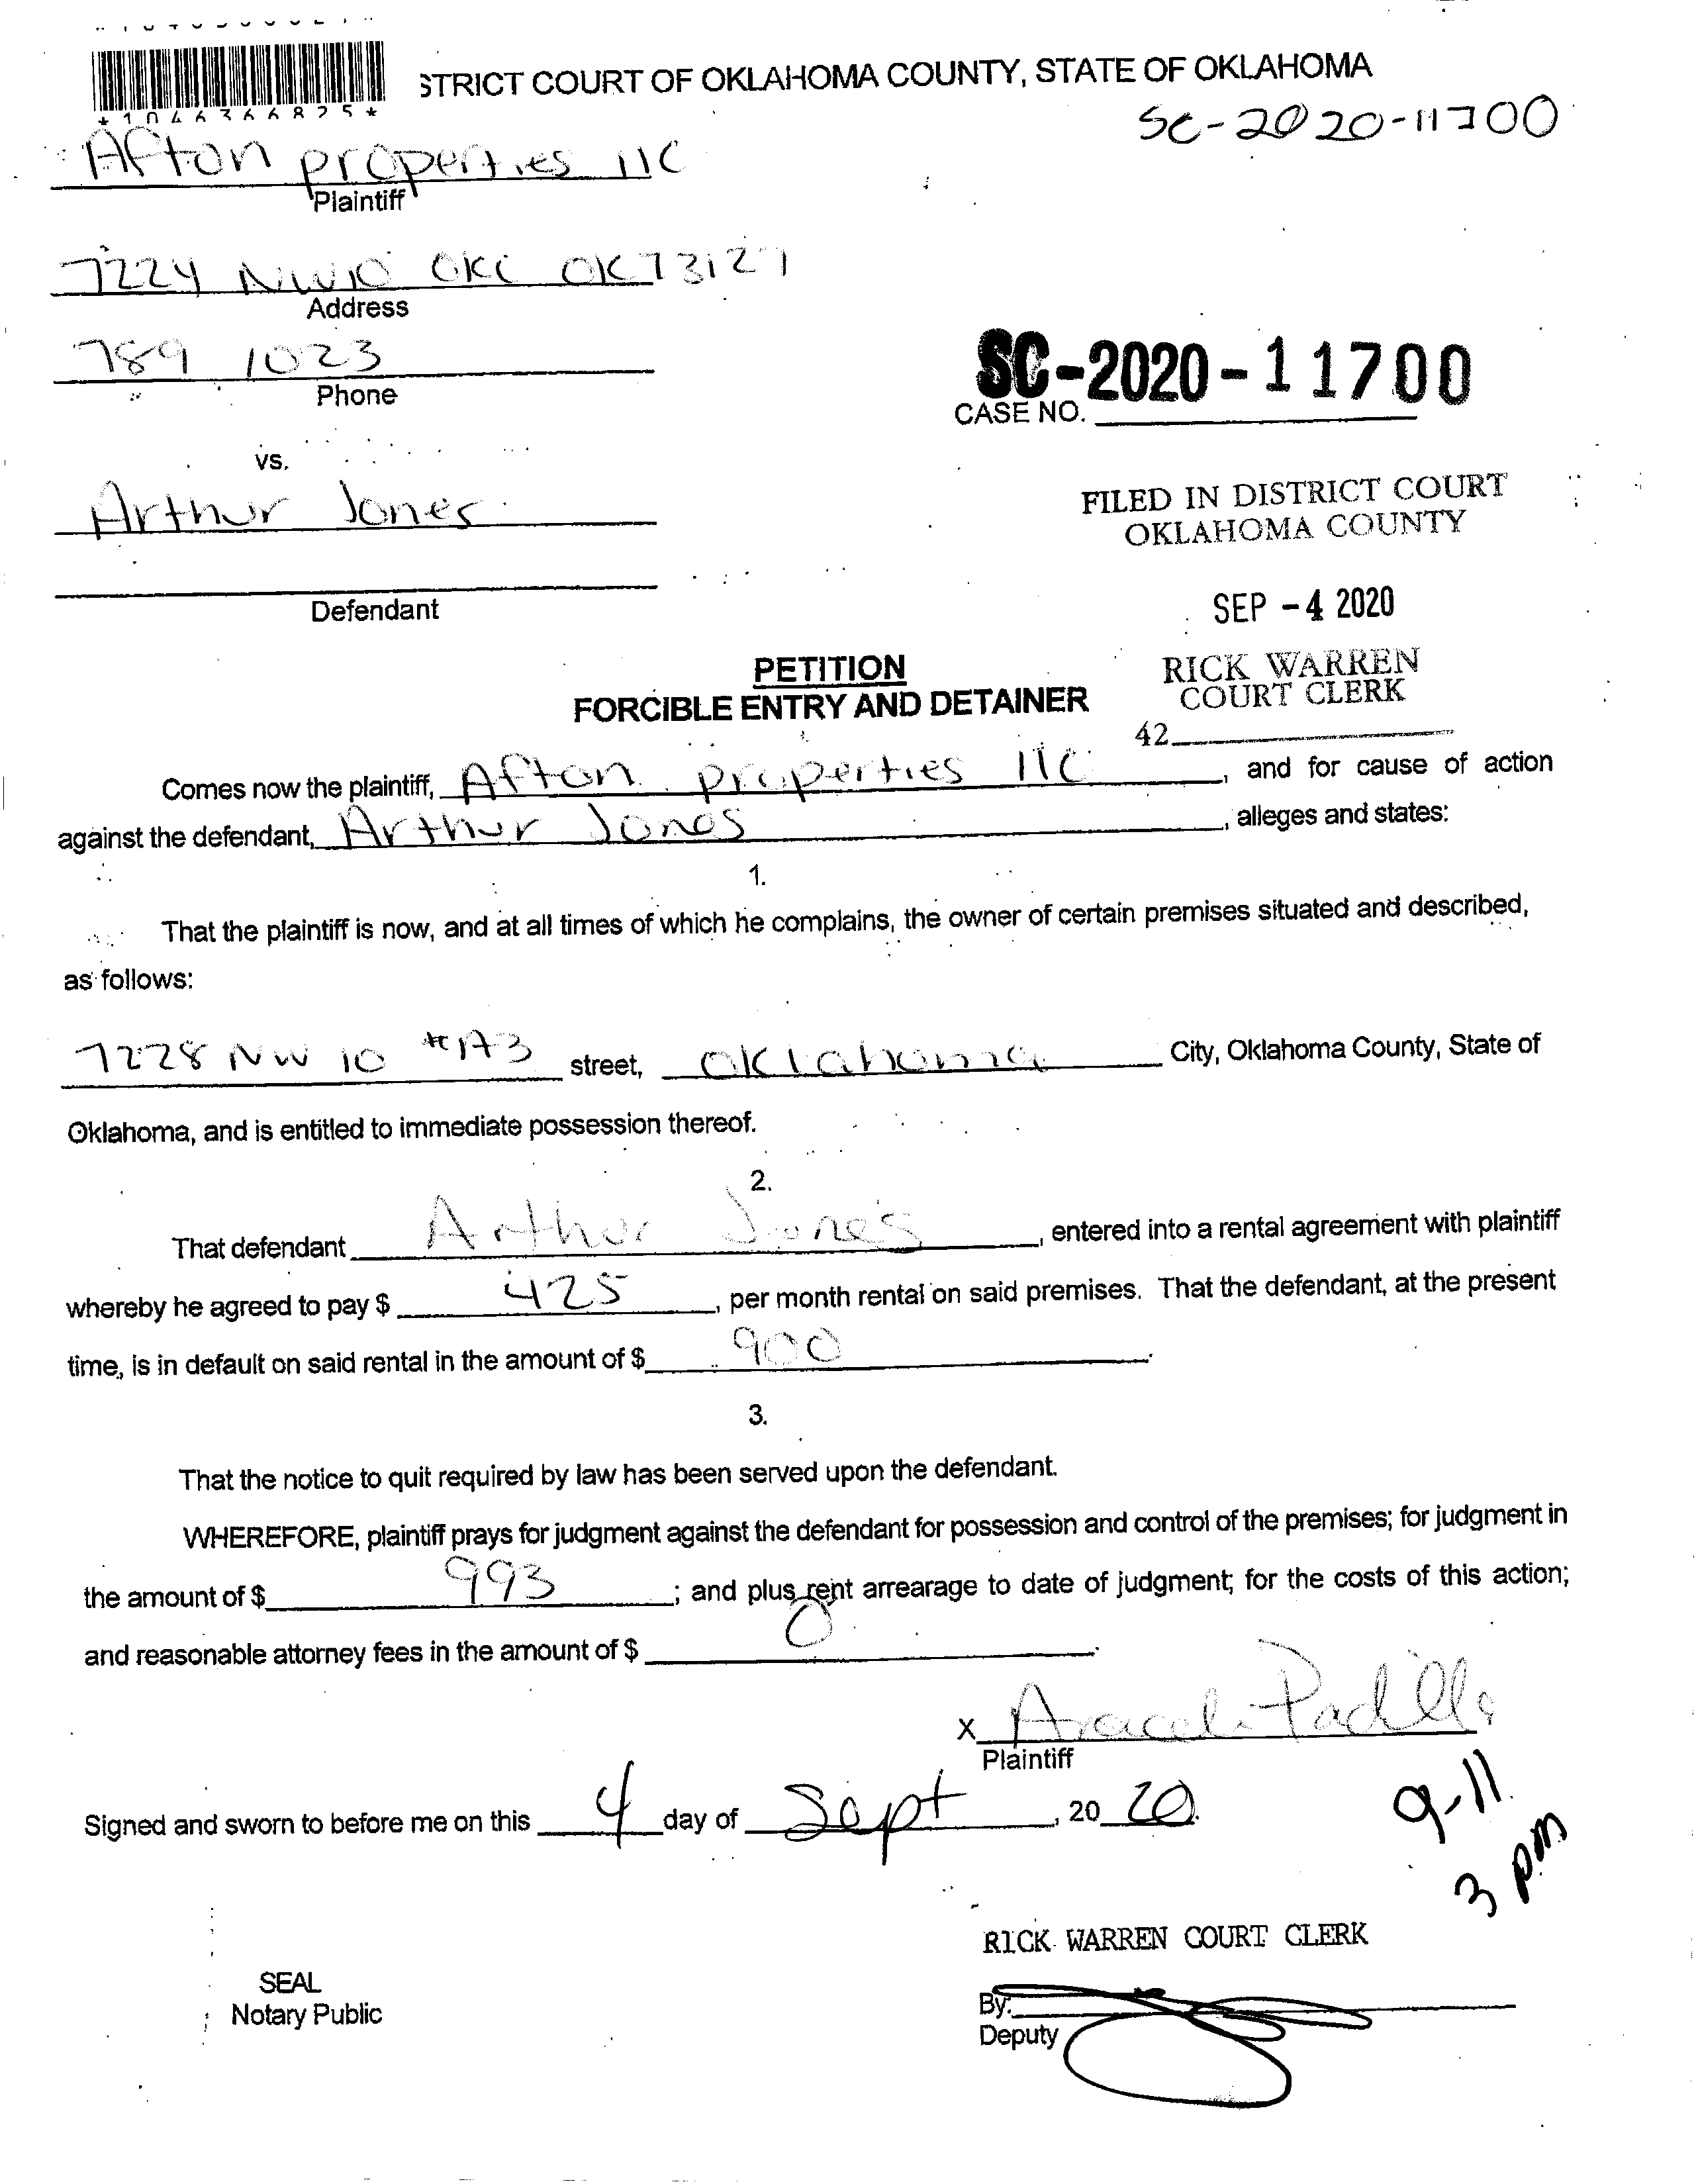 STRICT COURT OF OKLAHOMA COUNTY, STATE OF OKLAHOMA
*1046366825*
SC-2020-11700
Afton properties llC
Plaintiff
7224 NW10 OKC OK73127
Address
789 1023
Phone
SC-2020-11700
CASE NO.
vs.
Arthur Jones
FILED IN DISTRICT COURT
OKLAHOMA COUNTY
Defendant
SEP -4 2020
PETITION
FORCIBLE ENTRY AND DETAINER
RICK WARREN
COURT CLERK
42
Comes now the plaintiff, Afton properties llC, and for cause of action
against the defendant, Arthur Jones, alleges and states:
1.
That the plaintiff is now, and at all times of which he complains, the owner of certain premises situated and described,
as follows:
7228 NW 10 #173 street, Oklahoma City, Oklahoma County, State of
Oklahoma, and is entitled to immediate possession thereof.
2.
That defendant Arthur Jones, entered into a rental agreement with plaintiff
whereby he agreed to pay $ 425, per month rental on said premises. That the defendant, at the present
time, is in default on said rental in the amount of $ 900.
3.
That the notice to quit required by law has been served upon the defendant.
WHEREFORE, plaintiff prays for judgment against the defendant for possession and control of the premises; for judgment in
the amount of $ 993; and plus rent arrearage to date of judgment; for the costs of this action;
and reasonable attorney fees in the amount of $ 0.
X Araceli Padilla
Plaintiff
Signed and sworn to before me on this 4 day of Sept, 20 20.
9-11
3 pm
RICK WARREN COURT CLERK
SEAL
Notary Public
By:
Deputy